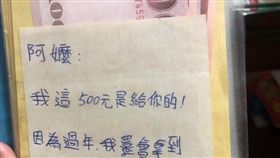 阿嬤：
我這500元是給你的！
因為過年,我還會拿到